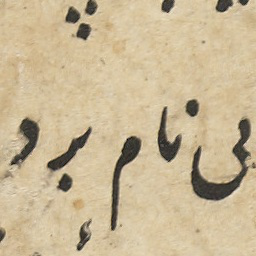 بی نام برد